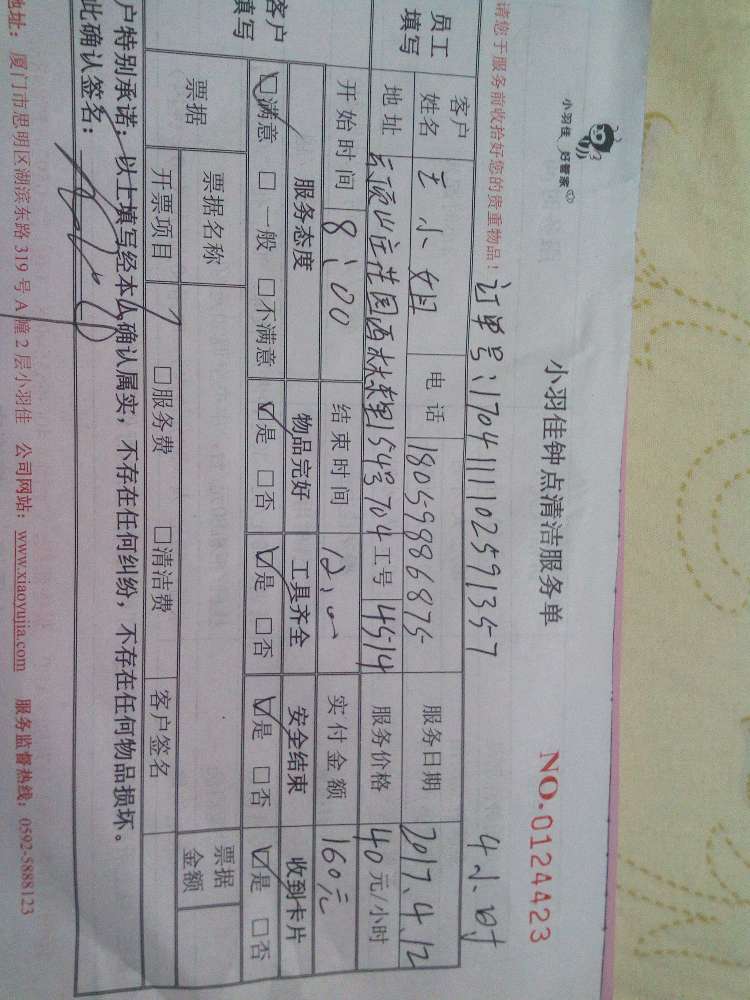 小羽佳 好管家
小羽佳钟点清洁服务单
NO.0124423
请您于服务前收拾好您的贵重物品!
订单号:1704111102591357 4小时
员工填写
客户姓名 王小姐 电话 18059886875 服务日期 2017.4.12
地址 天顶山庄花园西林东里154号704 工号 4514 服务价格 40元/小时
开始时间 8:00 结束时间 12:00 实付金额 160元
客户填写
服务态度 物品完好 工具齐全 安全结束 收到卡片
☑满意 □一般 □不满意 ☑是 □否 ☑是 □否 ☑是 □否 ☑是 □否
票据 票据名称 票据金额
开票项目 □服务费 □清洁费 客户签名
户特别承诺:以上填写经本人确认属实,不存在任何纠纷,不存在任何物品损坏。
此确认签名:
地址:厦门市思明区湖滨东路319号A幢2层小羽佳 公司网站:www.xiaoyujia.com 服务监督热线:0592-5888123